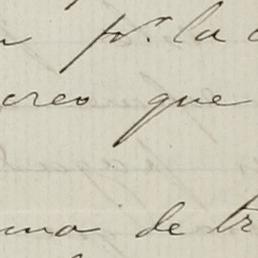 pr. la
creo que
una de tr